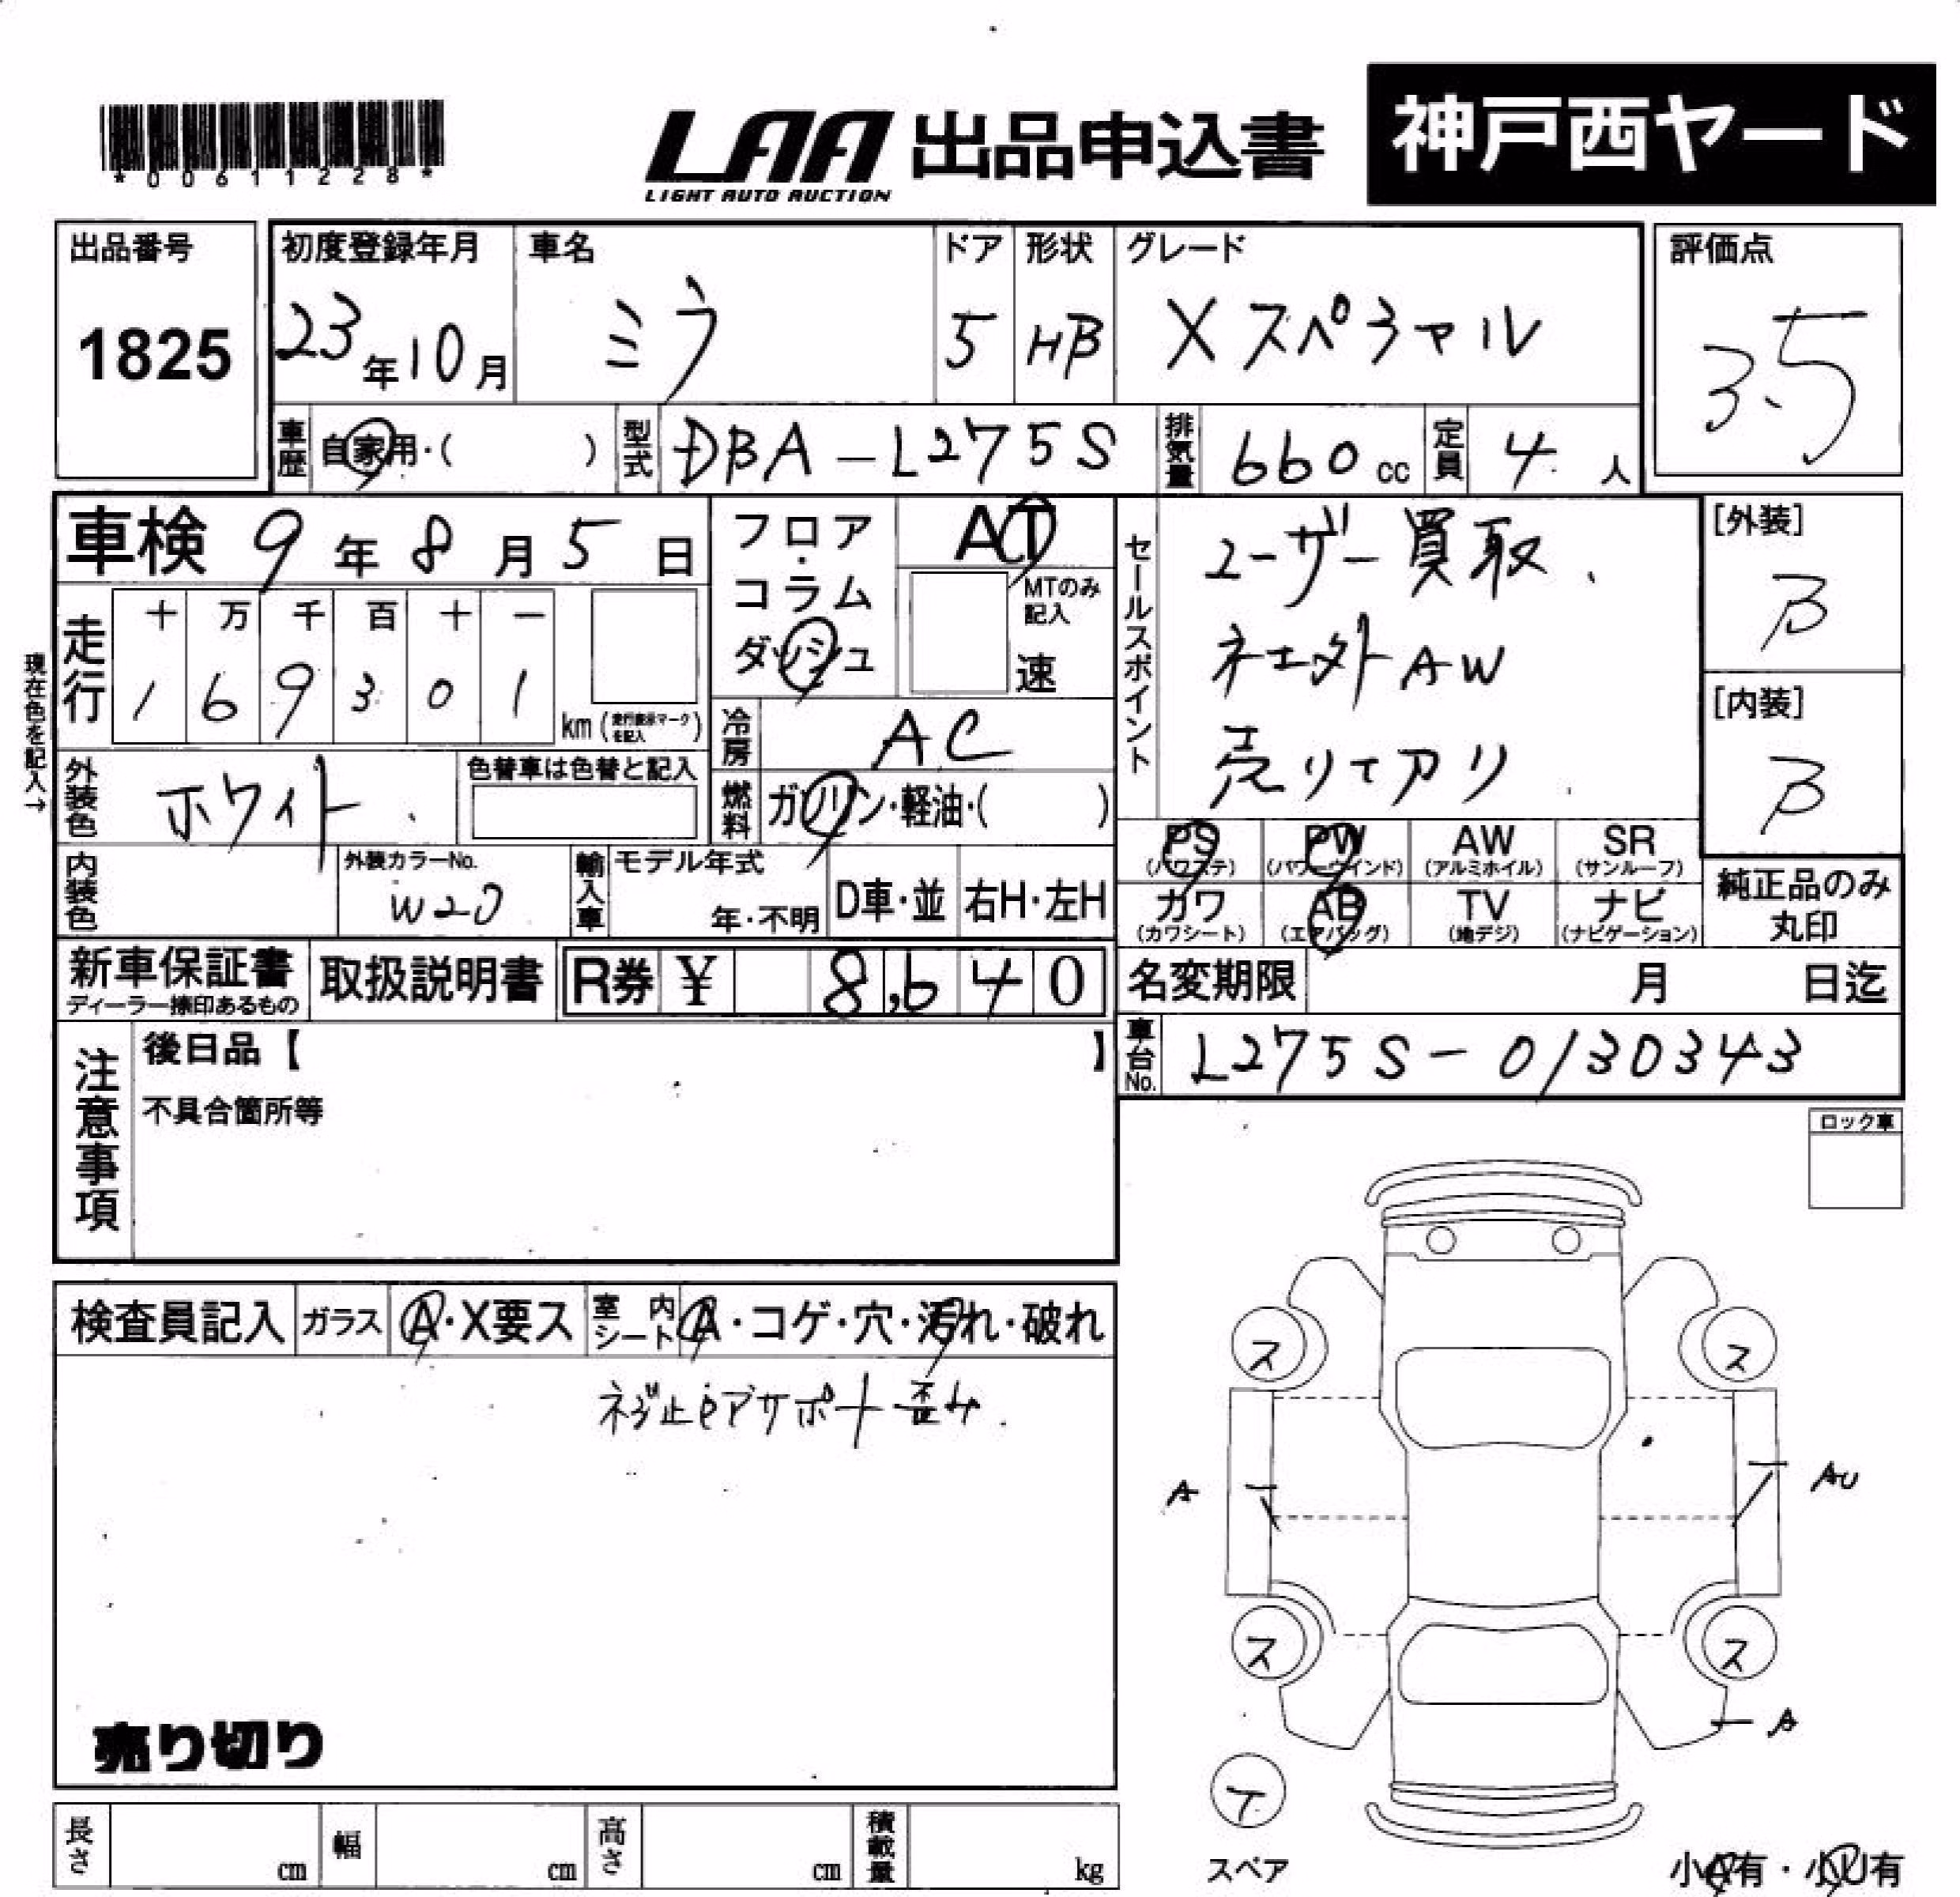 *00611228*
LAA 出品申込書 神戸西ヤード
LIGHT AUTO AUCTION
出品番号 1825
初度登録年月 23年10月
車名 ミラ
ドア 5
形状 HB
グレード Xスペシャル
評価点 3.5
車歴 自家用・( )
型式 DBA-L275S
排気量 660cc
定員 4人
車検 9年8月5日
フロア・コラム ダッシュ
AT
MTのみ記入
速
セールスポイント
ユーザー買取
ネエ外AW
売りてアリ
[外装] B
[内装] B
現在色を記入→
走行 十万千百十一
169301 km (走行表示マークを記入)
冷房 AC
燃料 ガソリン・軽油・( )
外装色 ホワイト
色替車は色替と記入
内装色
外装カラーNo. W20
輸入車 モデル年式 年・不明 D車・並 右H・左H
PS (パワステ) PW (パワーウインド) AW (アルミホイル) SR (サンルーフ)
カワ (カワシート) AB (エアバッグ) TV (地デジ) ナビ (ナビゲーション)
純正品のみ丸印
新車保証書 ディーラー捺印あるもの
取扱説明書
R券 ¥ 8,640
名変期限 月 日迄
車台No. L275S-0130343
注意事項
後日品【 】
不具合箇所等
ロック車
検査員記入 ガラス A・X要ス 室内シート A・コゲ・穴・汚れ・破れ
ネジ止めアサポート歪み
ス ス
A AU
ス ス
A
売り切り
T
スペア
小A有・小U有
長さ cm 幅 cm 高さ cm 積載量 kg